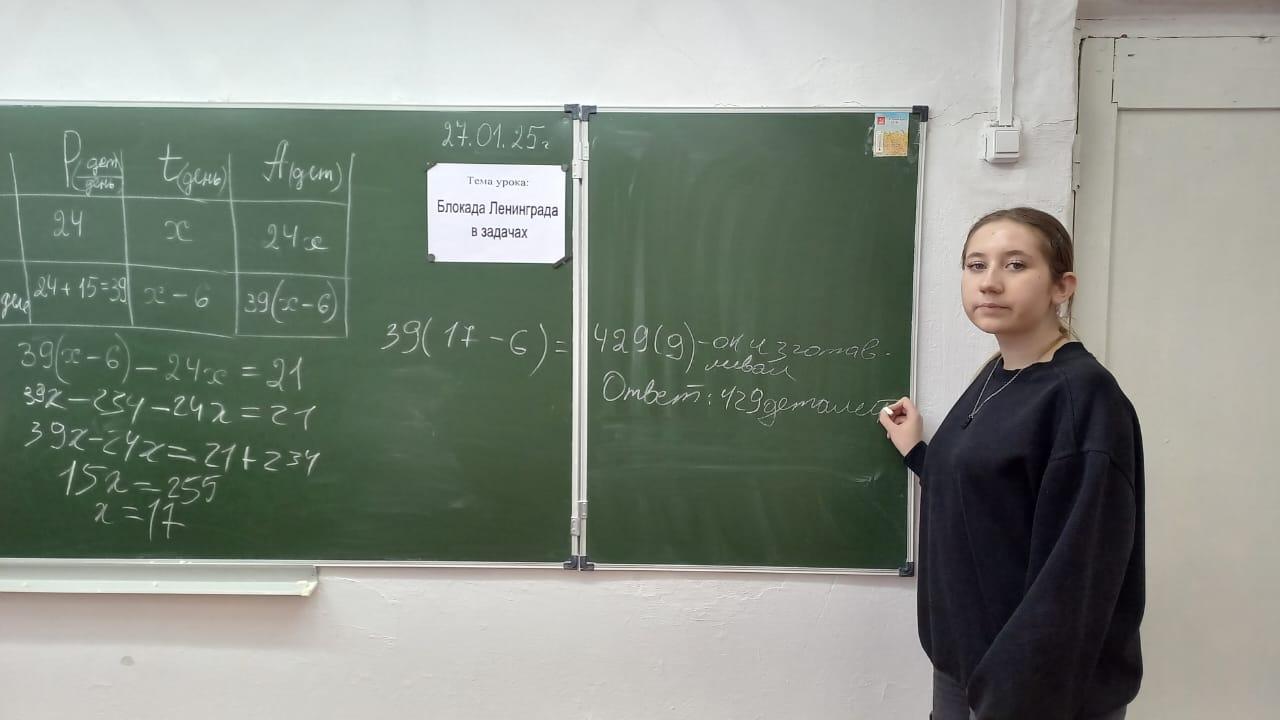 27.01.25г
P(дет/день) t(день) A(дет)
24 x 24x
24+15=39 x-6 39(x-6)
Тема урока:
Блокада Ленинграда
в задачах
39(x-6)-24x=21
39x-234-24x=21
39x-24x=21+234
15x=255
x=17
39(17-6)=429(д)-он изготав-
ливал
Ответ: 429 деталей